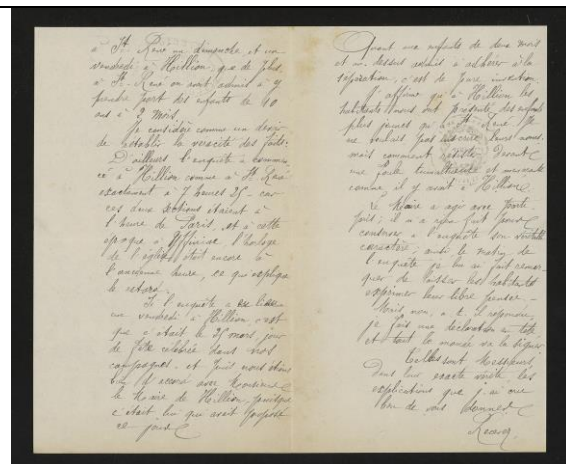 à St René un dimanche et un
vendredi à Hillion, que de plus,
à St René on avait admis à y
prendre part des enfants de 10
ans à 2 mois.
Je considère comme un devoir
de rétablir la véracité des faits.
D'ailleurs l'enquête a commen
cé à Hillion comme à St René
exactement à 7 heures 25 - car
ces deux sections étaient à
l'heure de Paris, et à cette
époque à l'horloge
de l'église était encore à
l'ancienne heure, ce qui explique
le retard.
Si l'enquête a eu lieu
un vendredi à Hillion c'est
que c'était le 25 mars, jour
de fête célébrée dans nos
campagnes, et puis nous étions
bien d'accord avec Monsieur
le Maire de Hillion, puisque
c'était lui qui avait proposé
ce jour
Quant aux enfants de deux mois
et au dessus admis à adhérer à la
séparation, c'est de pure invention.
J'affirme qu'à Hillion les
habitants nous ont présenté des enfants
plus jeunes qu'à St René. Je
ne voulais pas inscrire leurs noms.
mais comment résister devant
une foule et
comme il y avait à Hillion.
Le Maire a agi avec
il n'a rien fait pour
conserver à l'enquête son véritable
caractère; aussi le matin de
l'enquête je lui ai fait remar
quer de laisser les habitants
exprimer leur libre penser. -
Mais non, a t. il répondu,
je fais une déclaration en tête
et tout le monde va la signer
Telles sont Messieurs
dans leur exacte vérité les
explications que j'ai cru
bon de vous donner